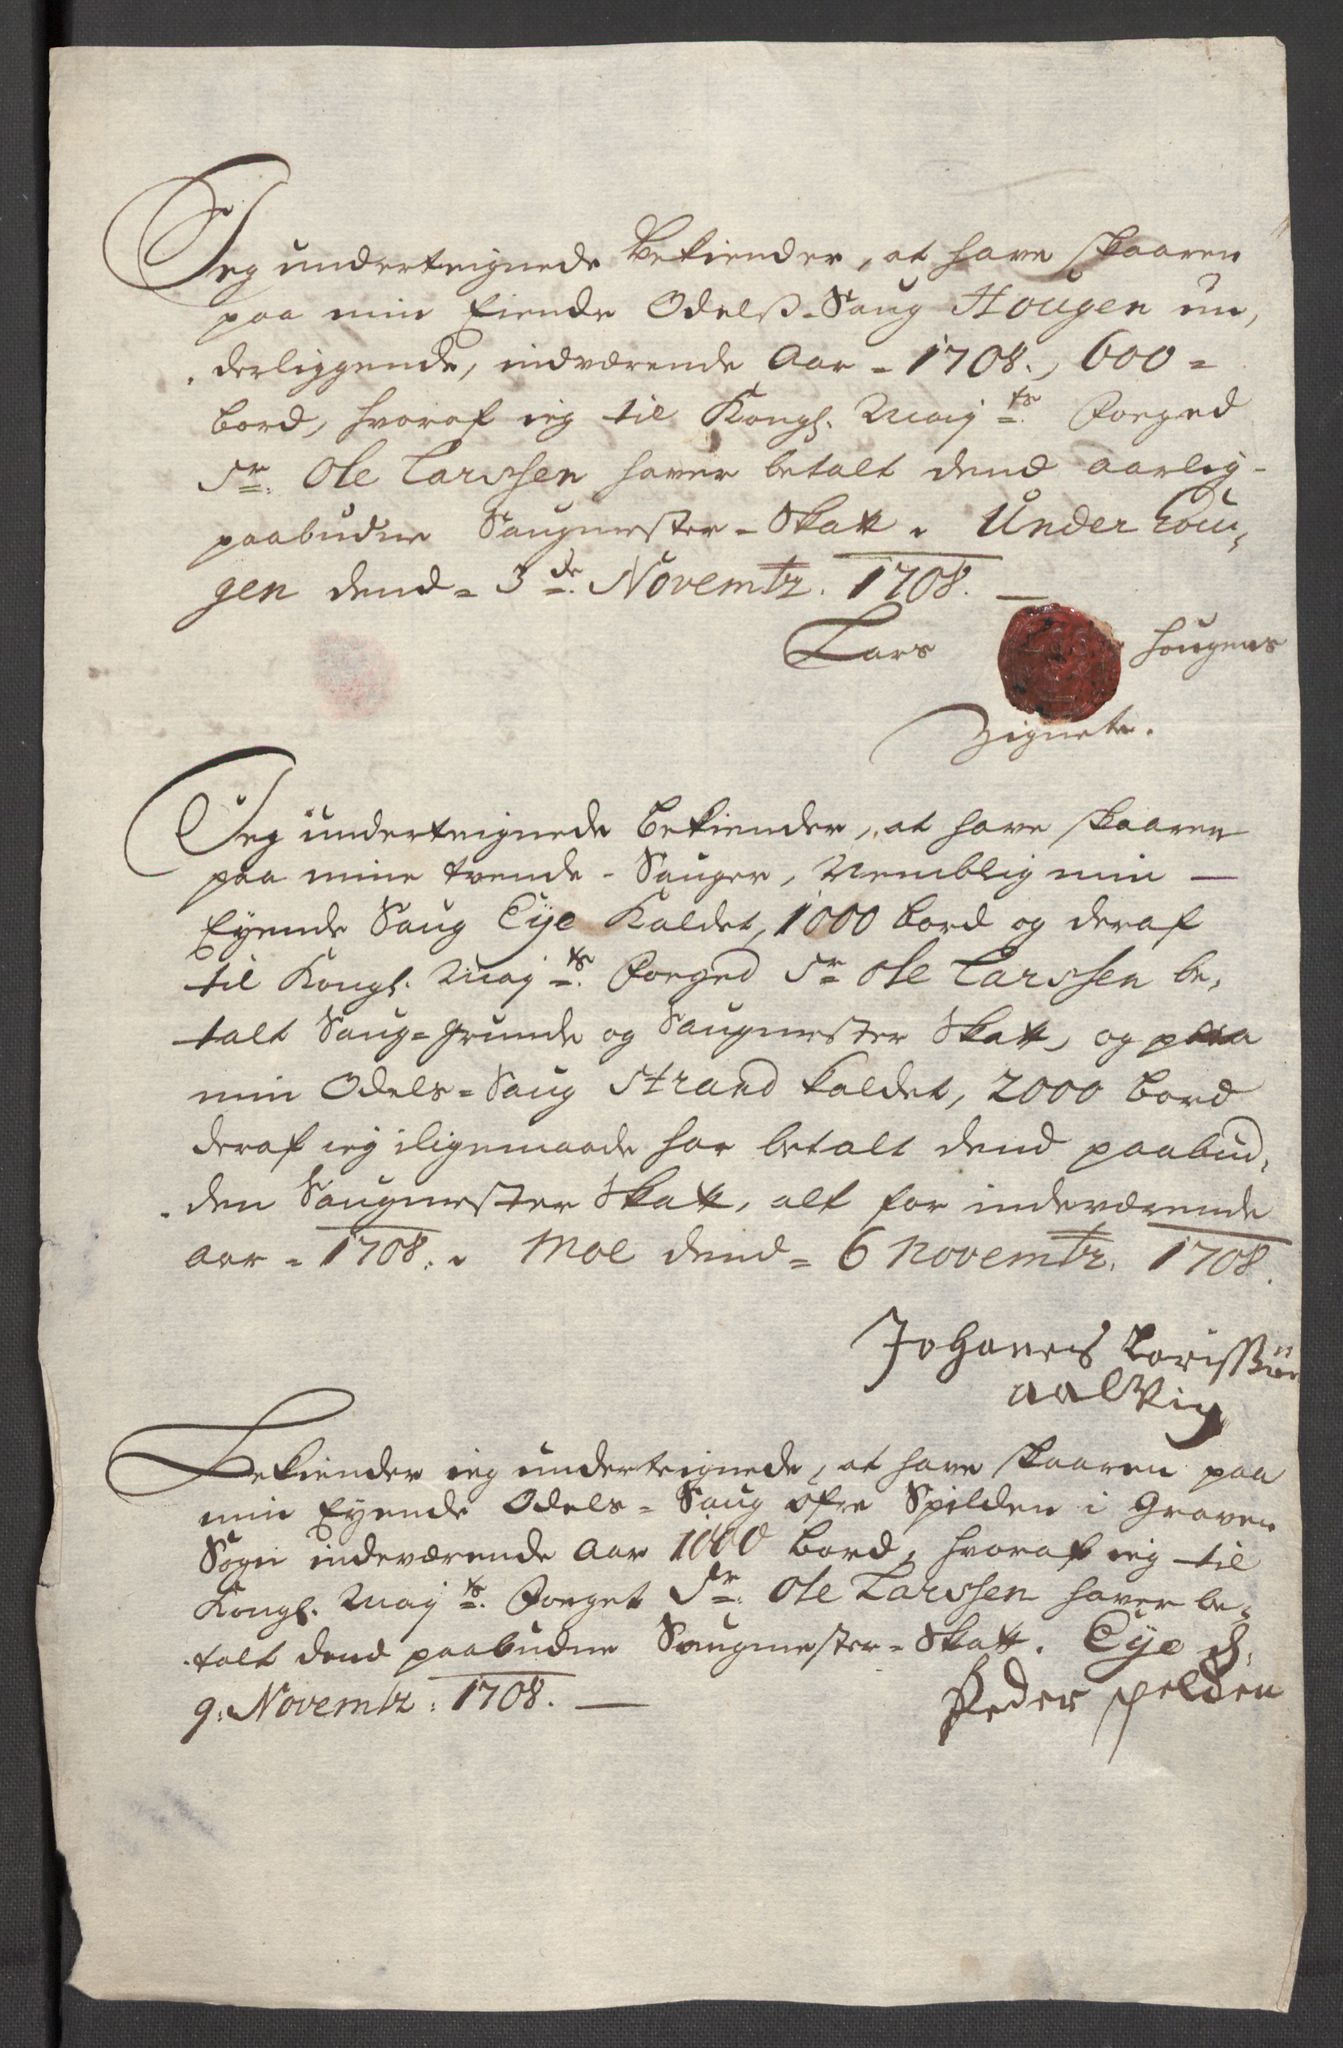 Jeg underteignede Bekiender, at have skaaren
paa min Eiende Odelß-Saug Hougen un,
derliggende, indværende Aar - 1708., 600 =
bord, hvoraf ieg til Kongl. Maÿ ts. Foeged
Sr. Ole Larssen haver betalt dend aarlig-
paabudne Saugmester-Skatt. Under Hou,
gen dend = 3 de. Novembr. 1708. —
Lars Hougens
Zignete.
Jeg underteignede bekiender, at have skaaren
paa mine tvende - Sauger, Nemblig min —
Eyende Saug Eÿe Kaldet, 1000 bord og deraf
til Kongl. Maÿ ts. Foeged Sr Ole Larssen be,
talt Saug=grunde og Saugmester Skatt, og paa
min Odels=Saug Strand kaldet, 2000 bord
deraf ieg iligemaade har betalt dend paabud,
den Saugmester Skatt, alt for indeværende
aar - 1708. Moe dend = 6 Novembr. 1708.
Johanes
aalVig
Bekiender ieg underteignede, at have skaaren paa
min Eyende Odels=Saug øfre Spilden i Graven
Sogn indeværende Aar 1000 bord, hvoraf ieg til
Kongl. Maÿ ts. Foeget Sr. Ole Larssen haver be,
talt dend paabudne Saugmester=Skatt. Eÿe d.
9. Novembr. 1708. —
Peder spelden